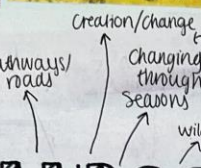 Creation/change
thways/
roads
Changing
through
Seasons
wil